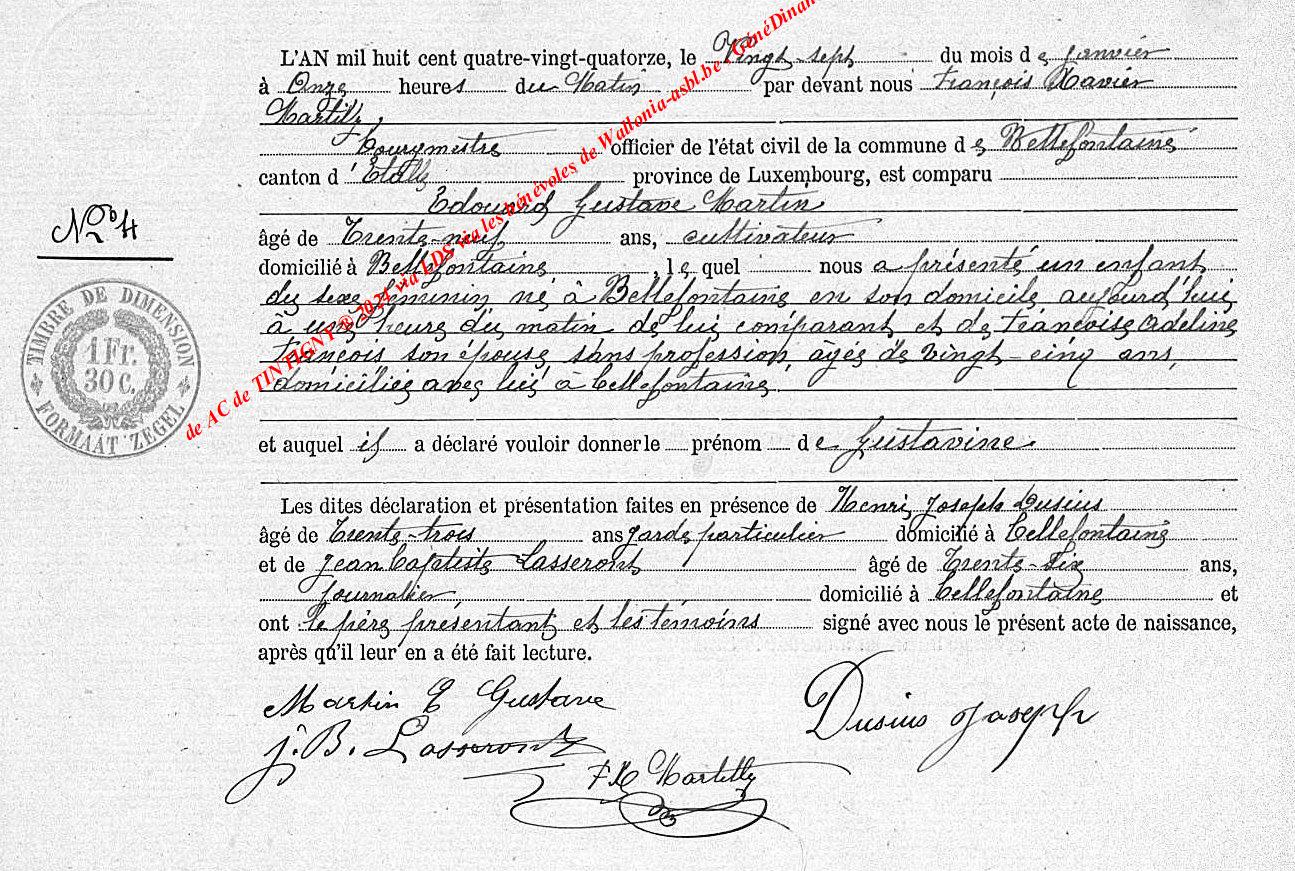 L'AN mil huit cent quatre-vingt-quatorze, le Vingt-sept du mois de Janvier
à Onze heures du Matin par devant nous François Xavier
Martilly,
bourgmestre officier de l'état civil de la commune de Bellefontaine
canton d'Etalle province de Luxembourg, est comparu
Edouard Gustave Martin
No 4
âgé de Trente-neuf ans, cultivateur
domicilié à Bellefontaine, lequel nous a présenté un enfant
du sexe féminin né à Bellefontaine en son domicile aujourd'hui
à une heure du matin de lui comparant et de Françoise Adeline
François son épouse, sans profession, âgée de vingt-cinq ans,
domiciliée avec lui à bellefontaine,
TIMBRE DE DIMENSION
1 Fr.
30 C.
FORMAAT ZEGEL
et auquel il a déclaré vouloir donner le prénom de Gustavine.
Les dites déclaration et présentation faites en présence de Henri Joseph Dusius
âgé de Trente-trois ans garde particulier domicilié à bellefontaine
et de Jean baptiste Lasseront âgé de Trente-six ans,
Journalier, domicilié à bellefontaine et
ont le père présentant et les témoins signé avec nous le présent acte de naissance,
après qu'il leur en a été fait lecture.
Martin E Gustave
Dusius Joseph
J. B. Lasseront
F X Martilly
de AC de TINTIGNY © 2024 via LDS via les bénévoles de Wallonia-asbl.be - GénéDinan